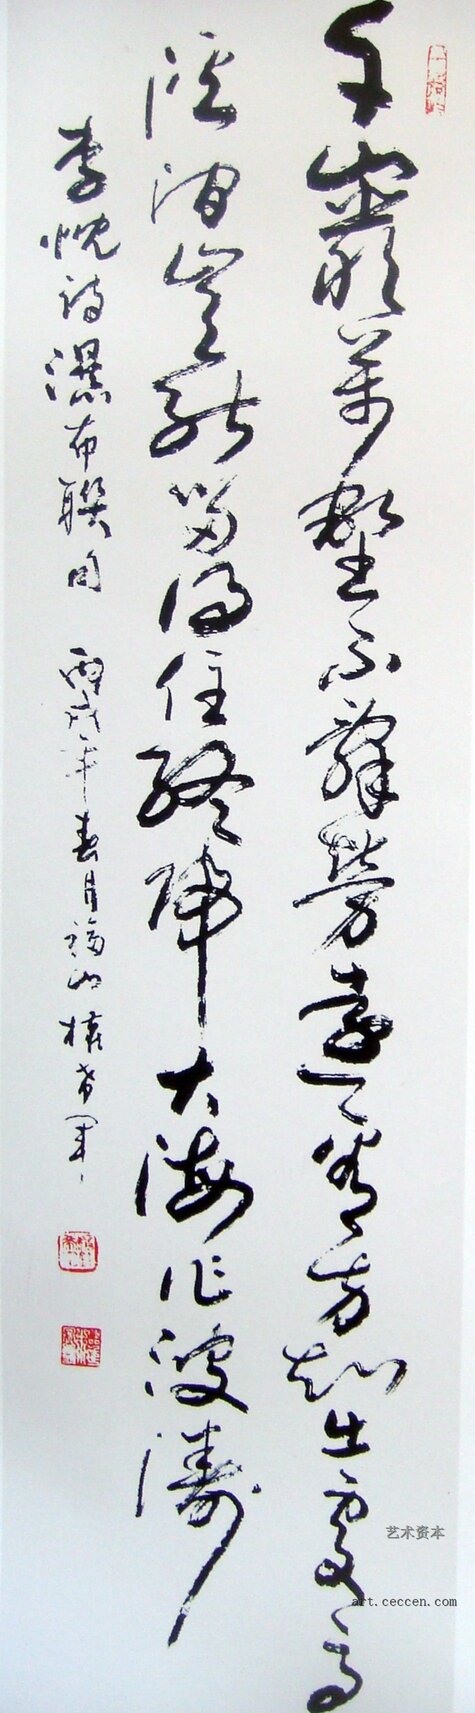 千岩万壑不辞劳远看方知出处高
溪涧岂能留得住终归大海作波涛
李忱诗瀑布联句 丙戌年春月福山权希军
艺术资本
art.ceccen.com